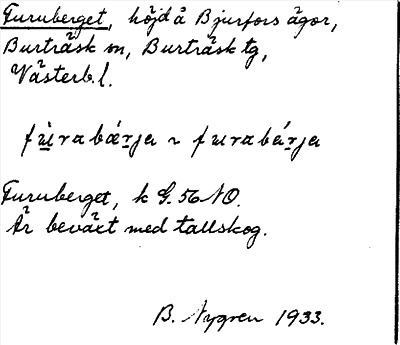 Furuberget, höjd å Bjurfors ägor,
Burträsk sn, Burträsk tg,
Västerb. l.
fù̱rabæ̀ṟja ~ furabǽṟja
Furuberget, k G. 56 NO.
Är beväxt med tallskog.
B. Nygren 1933.